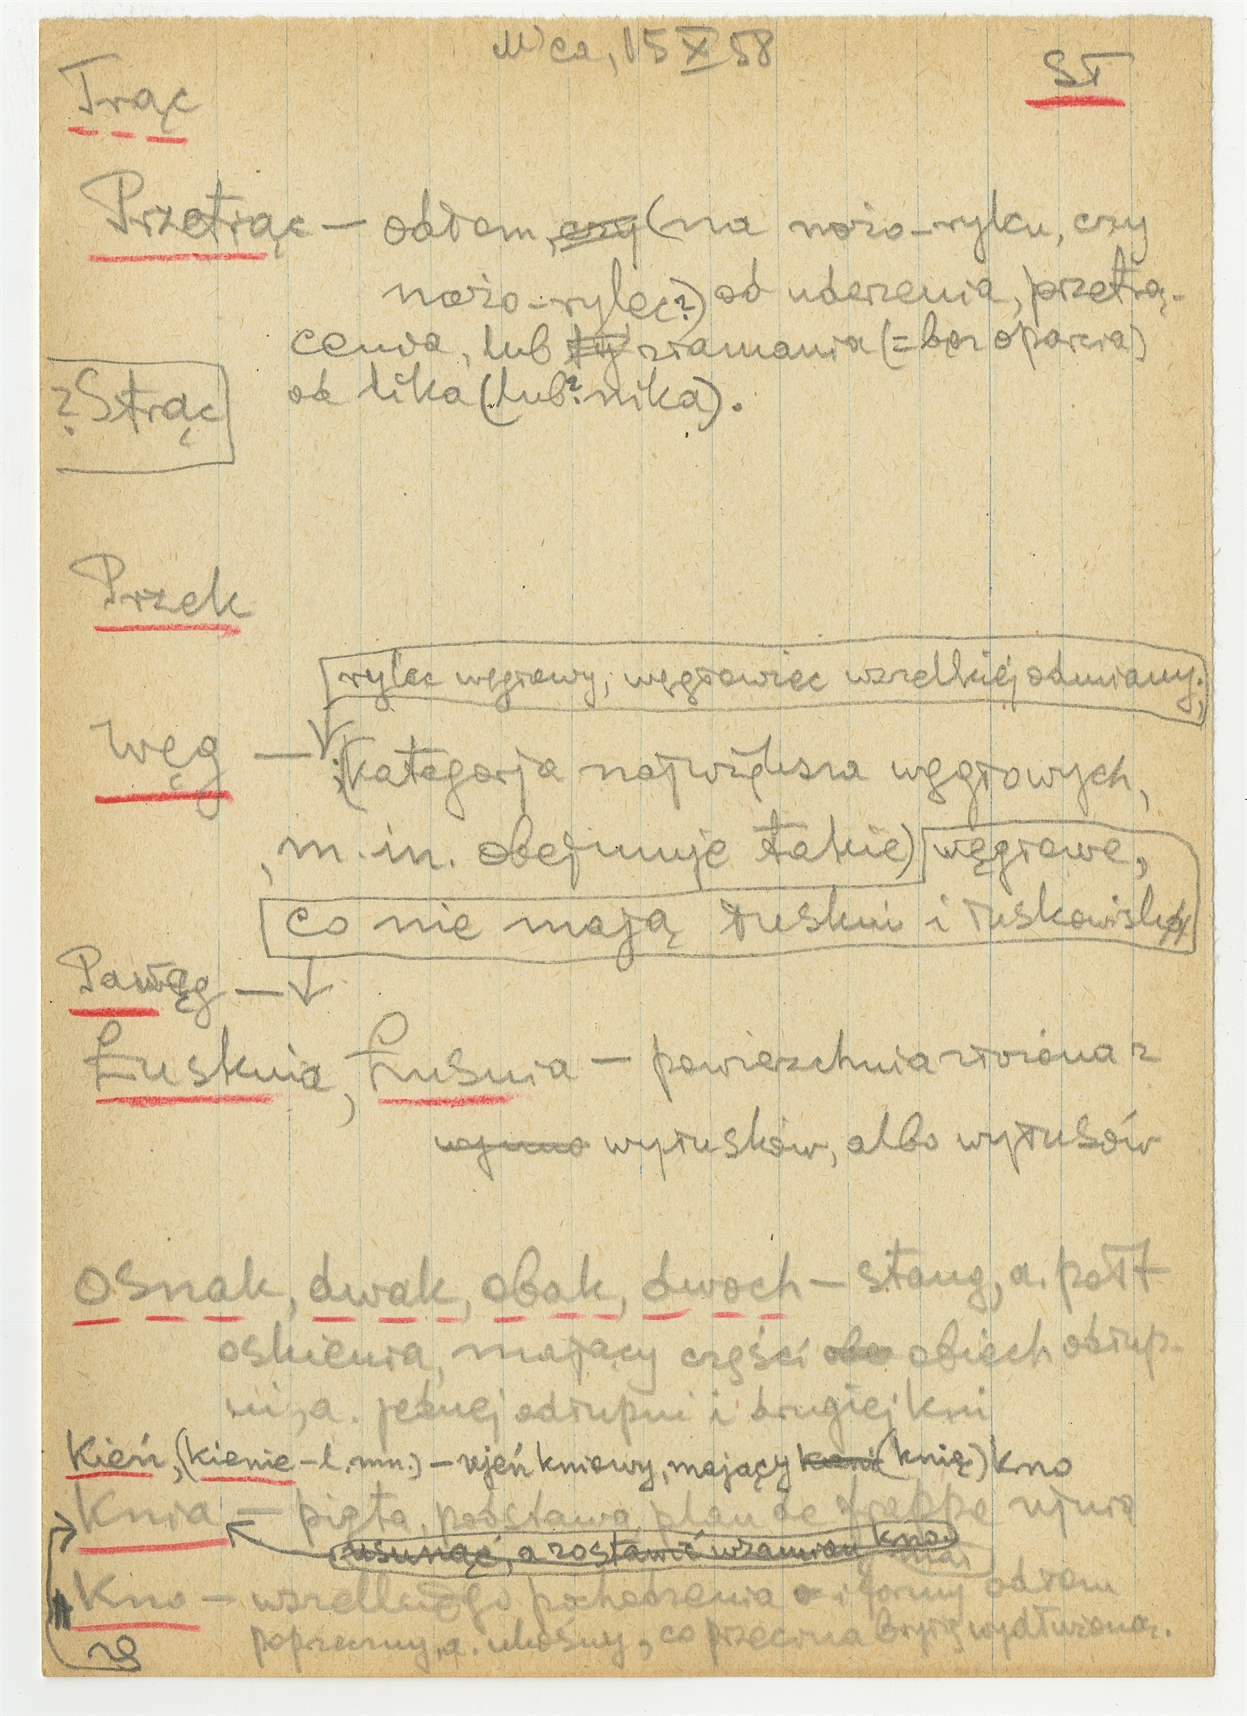 M'ca, 15 X 58
ST
Trąc
Przetrąc — odłam, czy (na nożo-ryłku, czy
nożo-rylec?) od uderzenia, przetrą-
cenia, lub ty złamania (= bez oparcia)
od lika (lub? nika).
?Strąc
Przek
rylec węgłowy, węgłowiec wszelkiej odmiany;
Węg — (kategorja największa węgłowych,
m. in. obejmuje takie) węgłowe,
co nie mają łuskni i łuskowisk
Pawęg —
Łusknia, Łuśnia — powierzchnia złożona z
wyłusków, albo wyłusów
Osnak, dwak, obak, dwoch — stang, a. połł
oskienia, mający części obu obiech odłup-
ni, a. jednej odłupni i drugiej kni
Kień, (kienie – l. mn.) – ujeń kniowy, mający (knię) kno
Knia — pięta, podstawa, plan de frappe ujnia
usunąć, a zostawić wzamian kno
Kno — wszelkiego pochodzenia i formy odłam
poprzeczny, a. ukośny, co przecina bryłę wydłużoną.